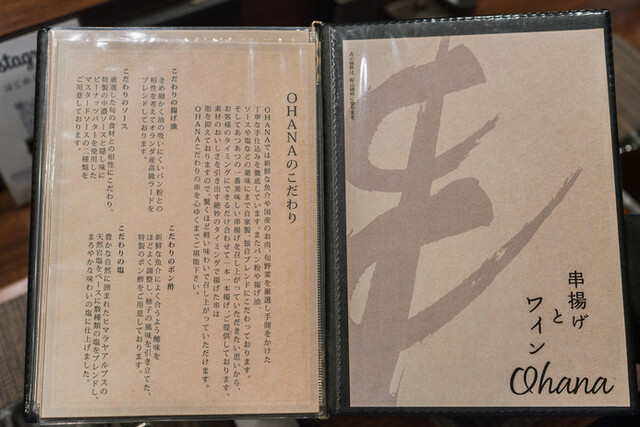 OHANAのこだわり
OHANAでは新鮮な魚介や国産のお肉・旬野菜を厳選し手間をかけた
丁寧な手仕込みを徹底しています。またパン粉や揚げ油、
ソースや塩などの薬味にまで自家製、独自ブレンドにこだわっております。
そしてあつあつの一番美味しい串揚げを召し上がっていただきたい思いから、
お客様のタイミングにできるだけ合わせて一本一本揚げ、ご提供しております。
素材のおいしさを引き出す絶妙のタイミングで揚げた串は
脂を抑えておりますので、驚くほど軽い味わいで召し上がっていただけます。
OHANAこだわりの串を心ゆくまでご堪能下さい。
こだわりの揚げ油
きめ細かく油の吸いにくいパン粉との
相性を考えてオランダ産高級ラードを
ブレンドしております。
こだわりのソース
厳選した旬の食材との相性にこだわり、
特製の中濃ソースと隠し味に
ピーナッツバターを使用した
マスタードソースの二種類を
ご用意しております。
こだわりのポン酢
新鮮な魚介によく合うよう酸味を
ほどよく調整し、柚子の風味を引き立てた、
特製のポン酢をご用意しております。
こだわりの塩
豊かな自然に囲まれたヒマラヤアルプスの
天然岩塩をベースに数種類の塩をブレンドし、
まろやかな味わいの塩に仕上げました。
串
串揚げ
と
ワイン
Ohana